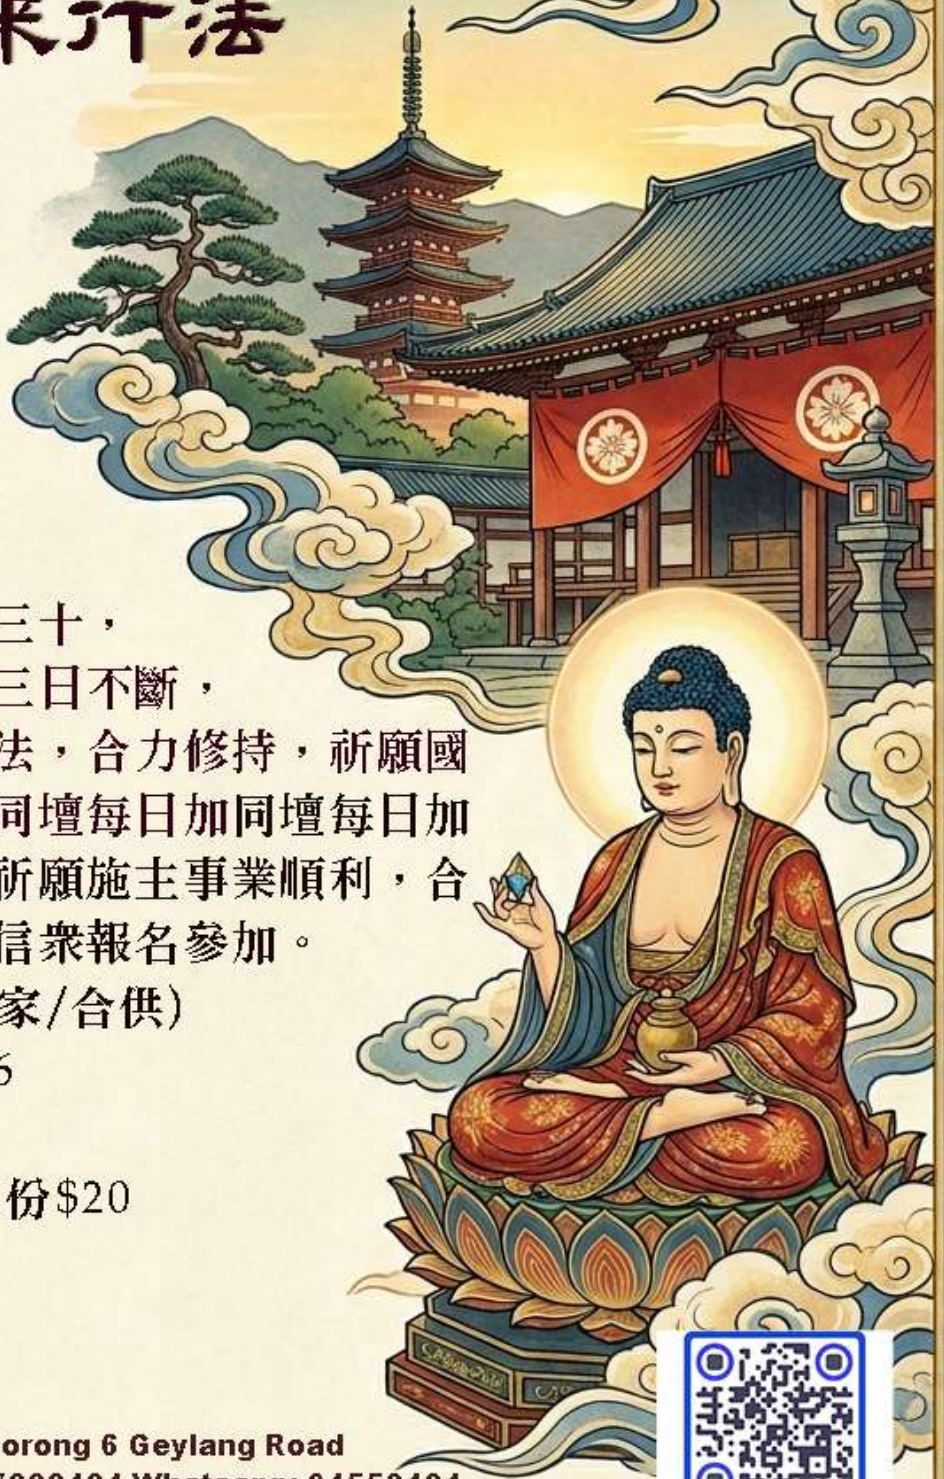 來行法
三十，
三日不斷，
法，合力修持，祈願國
同壇每日加同壇每日加
祈願施主事業順利，合
信衆報名參加。
家/合供)
6
份$20
orong 6 Geylang Road